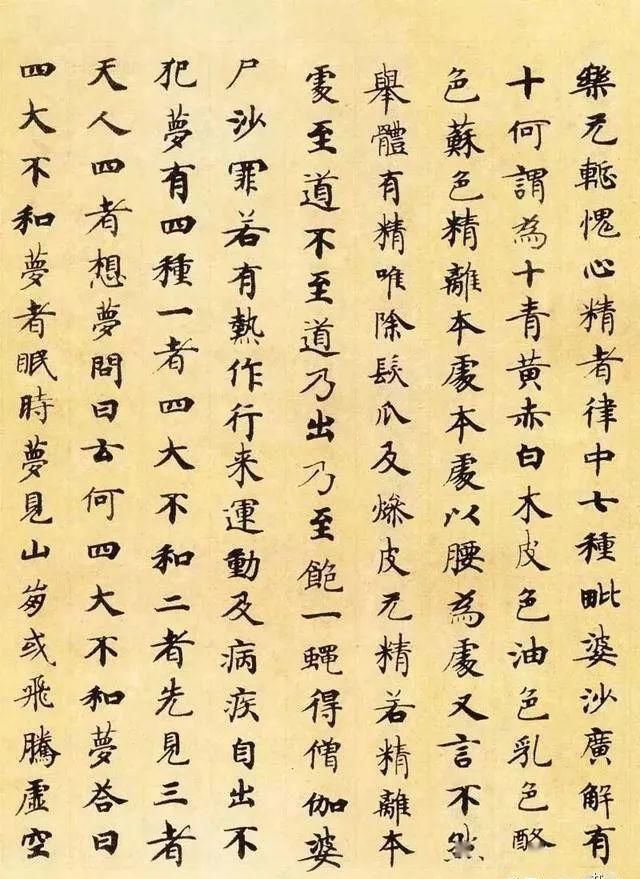 樂无慙愧心精者律中七種毗婆沙廣解有
十何謂為十青黃赤白木皮色油色乳色酪
色蘇色精離本處本處以腰為處又言不然
舉體有精唯除髮爪及燥皮无精若精離本
處至道不至道乃出乃至飽一蠅得僧伽婆
尸沙罪若有熱作行来運動及病疾自出不
犯夢有四種一者四大不和二者先見三者
天人四者想夢問曰云何四大不和夢荅曰
四大不和夢者眠時夢見山崩或飛騰虛空